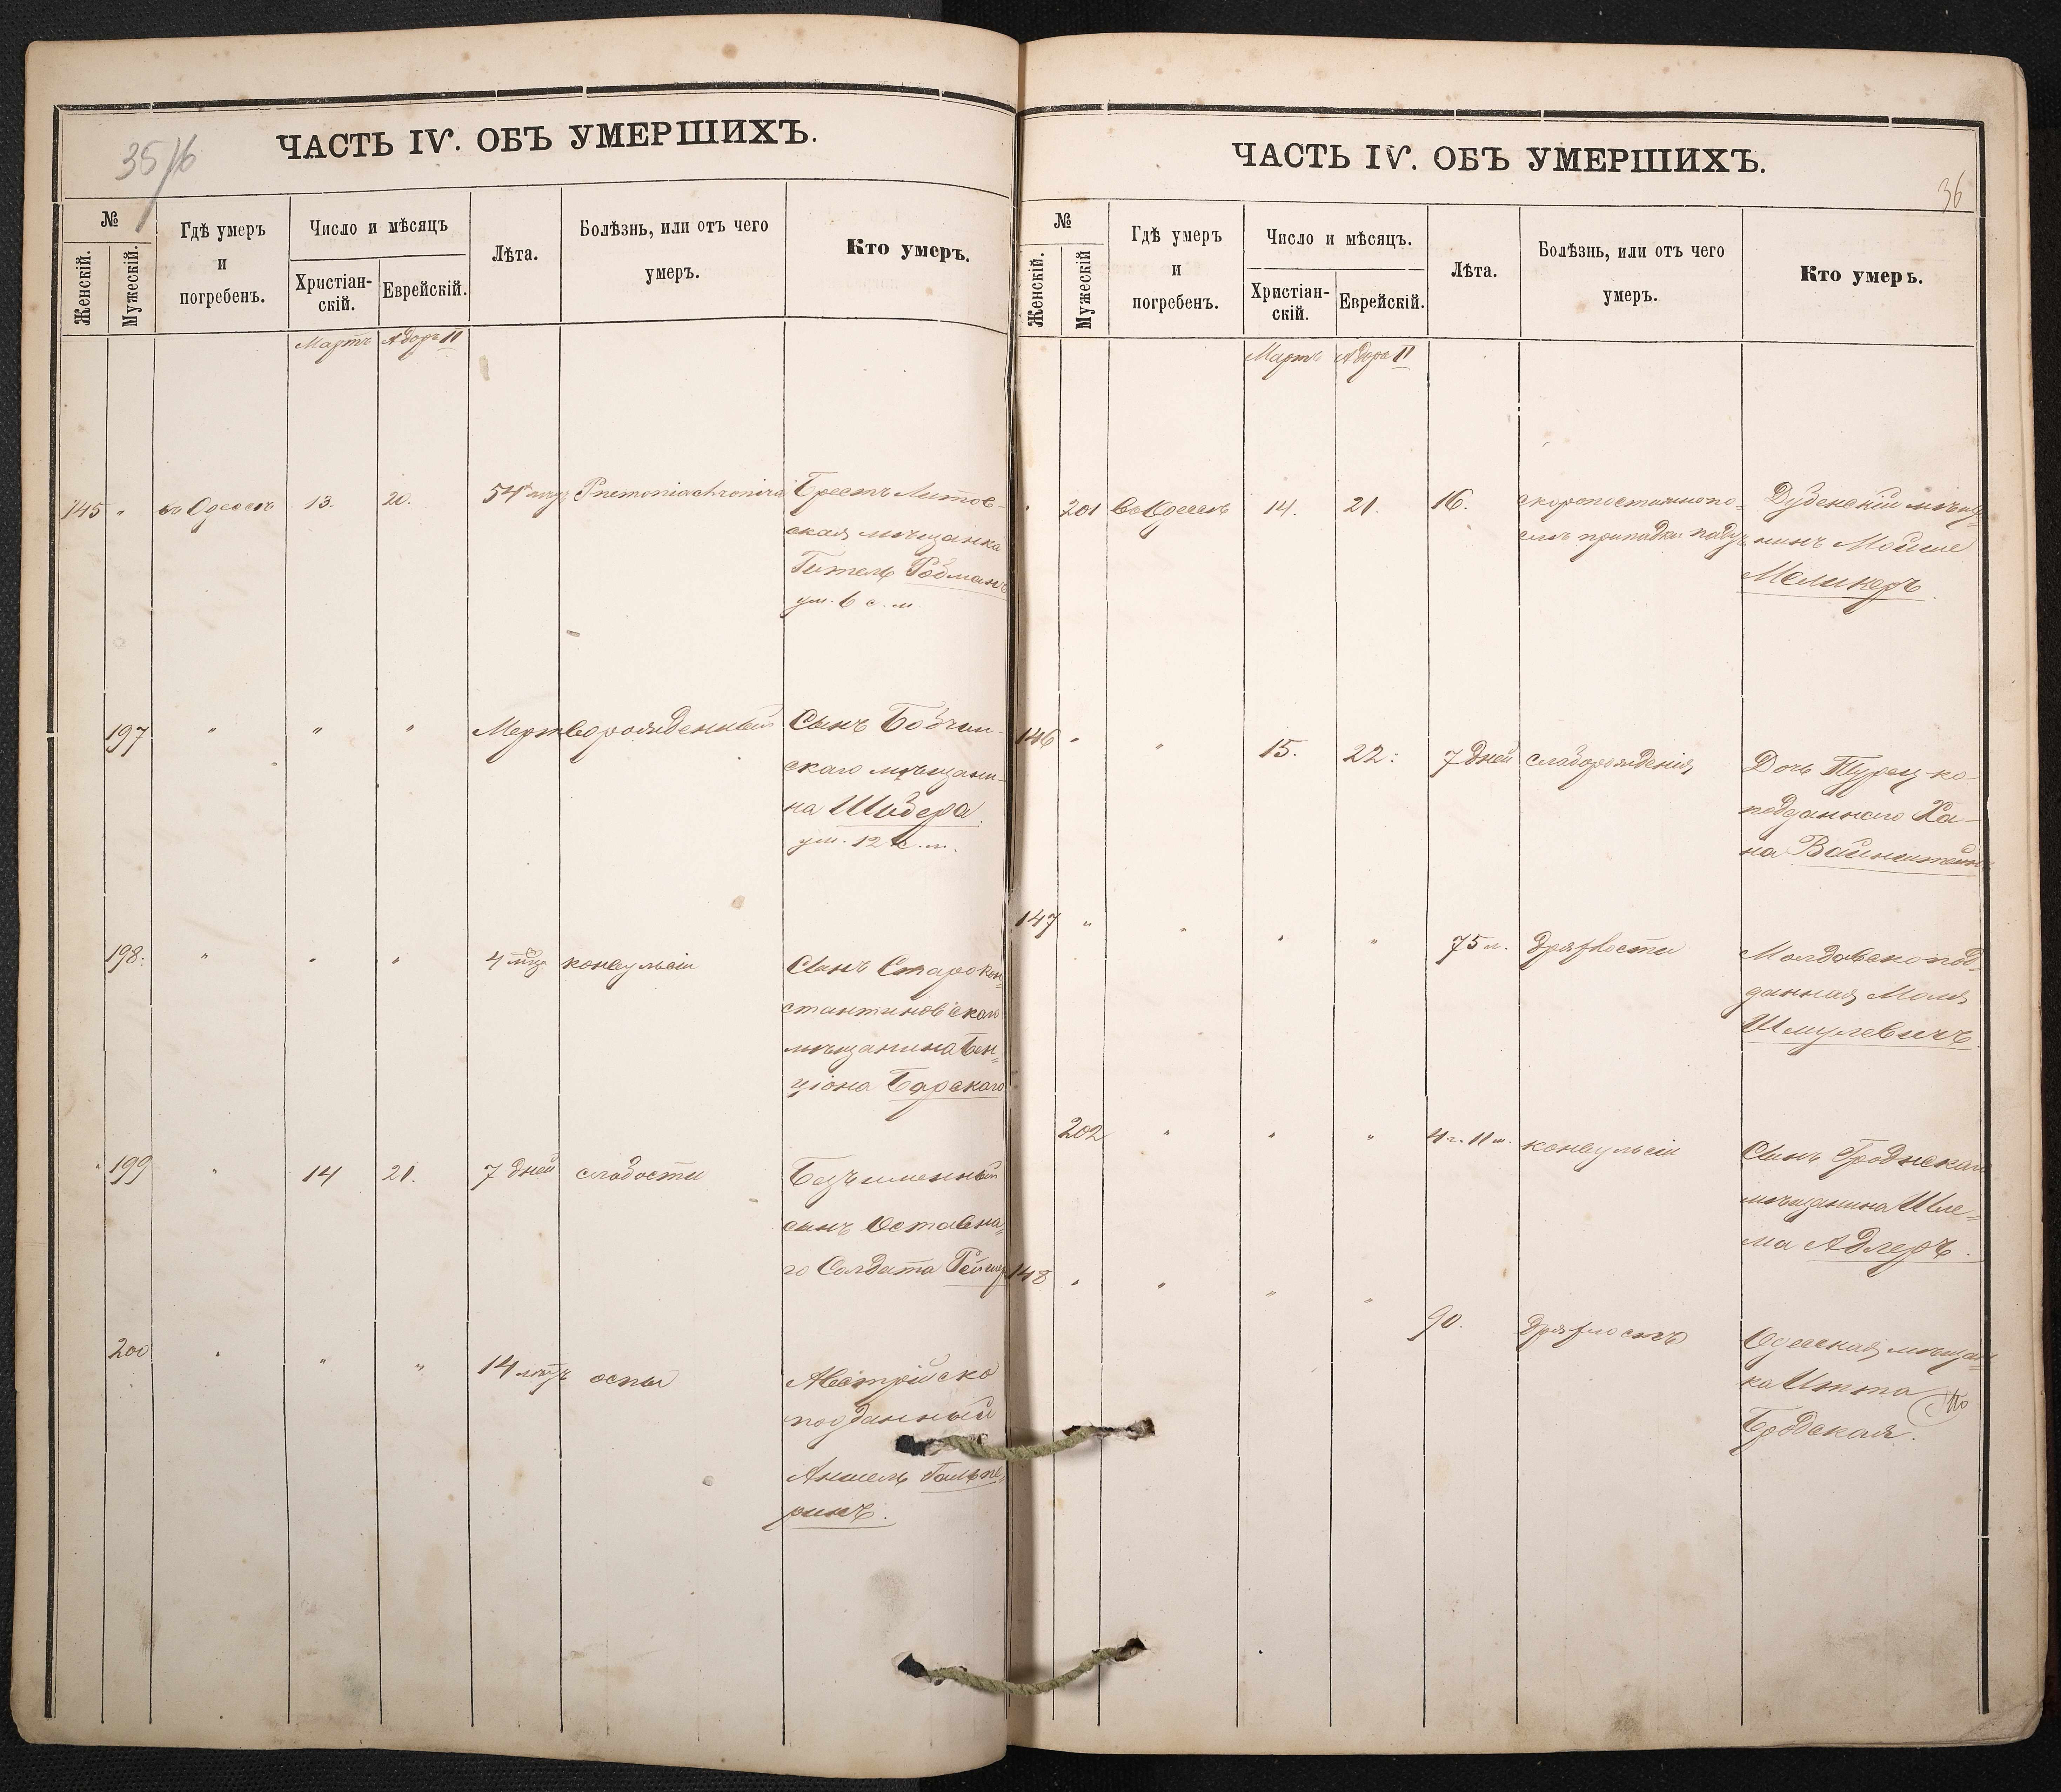 35/16
ЧАСТЬ IV. ОБЪ УМЕРШИХЪ.
№
Женскій.
Мужескій.
Гдѣ умеръ
и
погребенъ.
Число и мѣсяцъ
Христіан-
скій.
Еврейскій.
Лѣта.
Болѣзнь, или отъ чего
умеръ.
Кто умеръ.
Мартъ Адоръ II
145 " въ Одессѣ 13. 20. 54 Pnemonia chronica Брестъ Литов-
ская мѣщанка
Гитель Родманъ
ум. 6 с. м.
197 " " " Мертворожденный Сынъ
скаго мѣщани-
на Шидера.
ум. 12 с. м.
198. " " " 4 мѣц конвульсіи Сынъ Старокон=
стантиновскаго
мѣщанина Бен=
ціона Барскаго
" 199 " 14 21. 7 дней слабости Безъименный
сынъ Оставна=
го Солдата
200 " " " 14 лѣтъ оспы Австрійско
подданный
Аншель Гальпе=
ринъ.
ЧАСТЬ IV. ОБЪ УМЕРШИХЪ.
36
№
Женскій.
Мужескій
Гдѣ умеръ
и
погребенъ.
Число и мѣсяцъ.
Христіан-
скій.
Еврейскій.
Лѣта.
Болѣзнь, или отъ чего
умеръ.
Кто умеръ.
Мартъ Адоръ II
" 201 Въ Одессѣ 14. 21. 16. скоропостижно по- Дубенскій мѣща
припадки нинъ Мойше
Меликеръ.
146 " " 15. 22: 7 дней слаборожденія Дочь Турец-ко
подданнаго Ха-
на Вайнштейнъ
147 " " " " 75 л. дряхлости Молдавскопод=
данная Моля
Шмулевичъ.
202 " " " 4 г. 11 м. конвульсіи Сынъ Гродненскаго
мѣщанина Шле=
ма Адлеръ.
148 " " " " 90. дряхлость Одесская мѣщан=
ка Итта
Бродская.